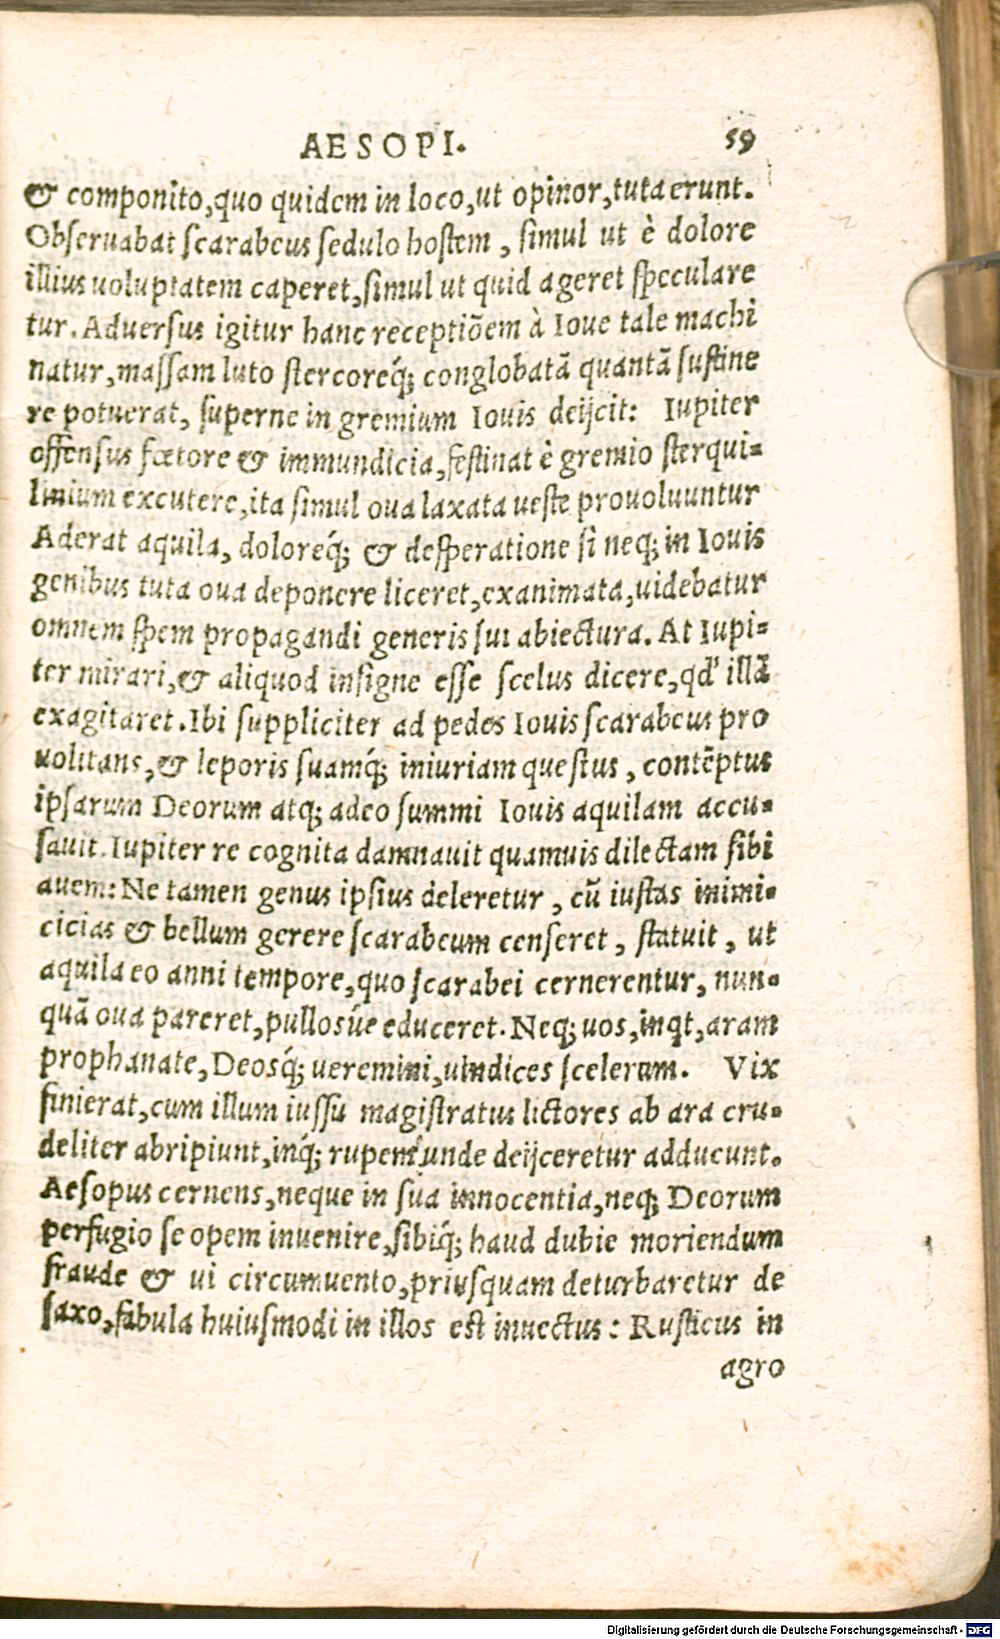 AESOPI. 59
& componito, quo quidem in loco, ut opinor, tuta erunt.
Obseruabat scarabeus sedulo hostem, simul ut è dolore
illius uoluptatem caperet, simul ut quid ageret speculare
tur. Aduersus igitur hanc receptiõem à Ioue tale machi
natur, massam luto stercoreq́; conglobatã quantã sustine
re potuerat, superne in gremium Iouis deijcit: Iupiter
offensus fœtore & immundicia, festinat è gremio sterqui-
linium excutere, ita simul oua laxata ueste prouoluuntur
Aderat aquila, doloreq́; & desperatione si neq; in Iouis
genibus tuta oua deponere liceret, exanimata, uidebatur
omnem spem propagandi generis sui abiectura. At Iupi-
ter mirari, & aliquod insigne esse scelus dicere, qd' illã
exagitaret. Ibi suppliciter ad pedes Iouis scarabeus pro
uolitans, & leporis suamq́; iniuriam questus, contẽptus
ipsarum Deorum atq; adeo summi Iouis aquilam accu-
sauit. Iupiter re cognita damnauit quamuis dilectam sibi
auem: Ne tamen genus ipsius deleretur, cũ iustas inimi-
cicias & bellum gerere scarabeum censeret, statuit, ut
aquila eo anni tempore, quo scarabei cernerentur, nun-
quã oua pareret, pullosúe educeret. Neq; uos, inqt, aram
prophanate, Deosq́; ueremini, uindices scelerum. Vix
finierat, cum illum iussu magistratus lictores ab ara cru-
deliter abripiunt, inq́; rupem unde deijceretur adducunt.
Aesopus cernens, neque in sua innocentia, neq; Deorum
perfugio se opem inuenire, sibiq́; haud dubie moriendum
fraude & ui circumuento, priusquam deturbaretur de
saxo, fabula huiusmodi in illos est inuectus: Rusticus in
agro
Digitalisierung gefördert durch die Deutsche Forschungsgemeinschaft - DFG